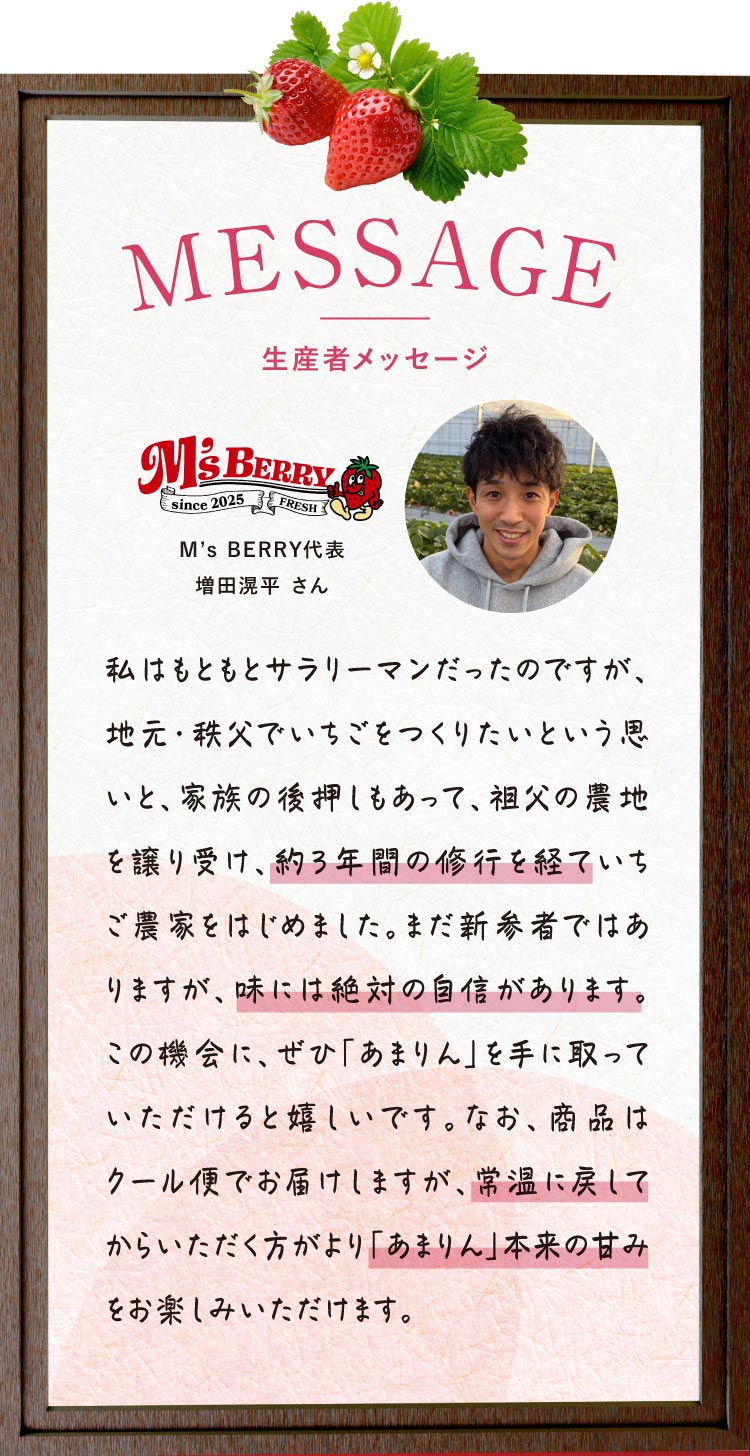 MESSAGE
生産者メッセージ
M's BERRY
since 2025
FRESH
M's BERRY代表
増田滉平 さん
私はもともとサラリーマンだったのですが、
地元・秩父でいちごをつくりたいという思
いと、家族の後押しもあって、祖父の農地
を譲り受け、約3年間の修行を経ていち
ご農家をはじめました。まだ新参者ではあ
りますが、味には絶対の自信があります。
この機会に、ぜひ「あまりん」を手に取って
いただけると嬉しいです。なお、商品は
クール便でお届けしますが、常温に戻して
からいただく方がより「あまりん」本来の甘み
をお楽しみいただけます。